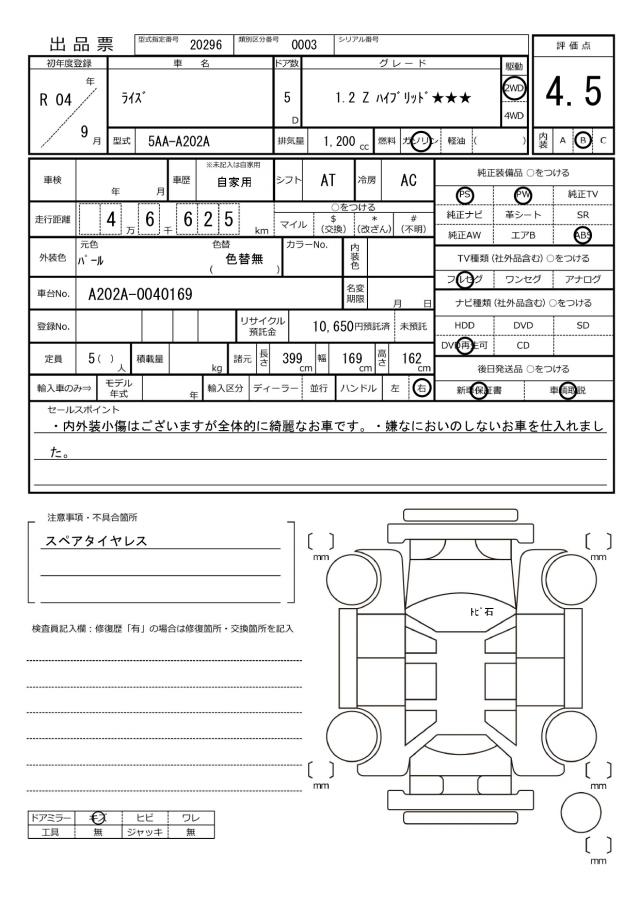 出品票 型式指定番号 20296 類別区分番号 0003 シリアル番号
評価点
初年度登録 車名 ドア数 グレード 駆動
R 04 年 9 月 ライズ 5 D 1.2 Z ハイブリッド★★★ 2WD 4WD
4.5
型式 5AA-A202A 排気量 1,200 cc 燃料 ガソリン 軽油 ( )
内装 A B C
車検 年 月 車歴 ※未記入は自家用 自家用 シフト AT 冷房 AC
純正装備品 ○をつける
PS PW 純正TV
純正ナビ 革シート SR
純正AW エアB ABS
走行距離 4 万 6 千 6 2 5 km
○をつける
マイル $(交換) *(改ざん) #(不明)
外装色 元色 パール 色替 ( 色替無 ) カラーNo. 内装色
TV種類 (社外品含む) ○をつける
フルセグ ワンセグ アナログ
車台No. A202A-0040169 名変期限 月 日
ナビ種類 (社外品含む) ○をつける
HDD DVD SD
DVD再生可 CD
登録No. リサイクル預託金 10,650円預託済 未預託
定員 5 ( ) 人 積載量 kg 諸元 長さ 399 cm 幅 169 cm 高さ 162 cm
後日発送品 ○をつける
新車保証書 車輌取説
輸入車のみ⇒ モデル年式 年 輸入区分 ディーラー 並行 ハンドル 左 右
セールスポイント
・内外装小傷はございますが全体的に綺麗なお車です。・嫌なにおいのしないお車を仕入れまし
た。
注意事項・不具合箇所
スペアタイヤレス
検査員記入欄：修復歴「有」の場合は修復箇所・交換箇所を記入
〔 〕 mm
〔 〕 mm
トビ石
〔 〕 mm
〔 〕 mm
〔 〕 mm
ドアミラー キズ ヒビ ワレ
工具 無 ジャッキ 無